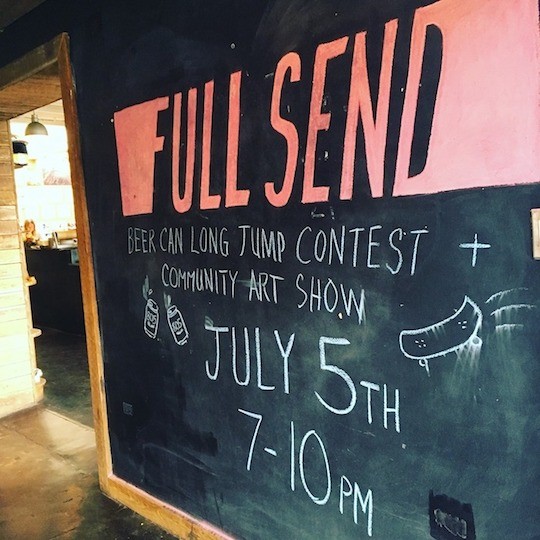 FULL SEND
BEER CAN LONG JUMP CONTEST +
COMMUNITY ART SHOW
JULY 5TH
7-10 PM